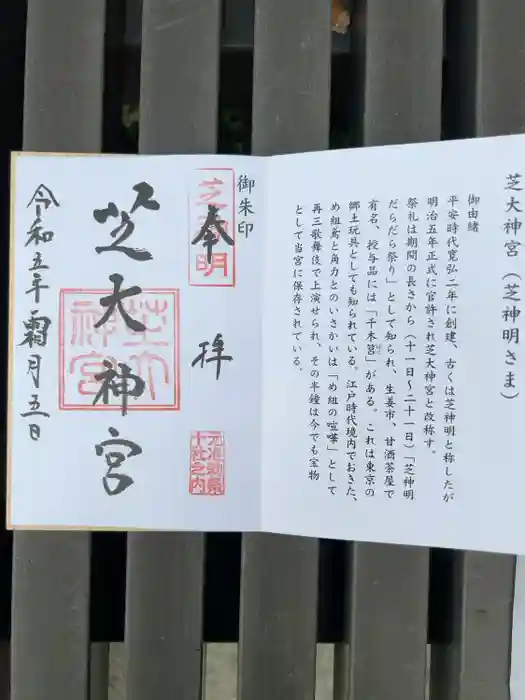 芝大神宮(芝神明さま)
御由緒
平安時代寛弘二年に創建、古くは芝神明と称したが
明治五年正式に官許され芝大神宮と改称す。
祭礼は期間の長さから(十一日~二十一日)「芝神明
だらだら祭り」として知られ、生姜市、甘酒茶屋で
有名、授与品には「千木筥」がある。これは東京の
郷土玩具としても知られている。江戸時代境内でおきた、
め組鳶と角力とのいさかいは「め組の喧嘩」として
再三歌舞伎で上演せられ、その半鐘は今でも宝物
として当宮に保存されている。
御朱印
奉拝
芝神明
元准勅祭
十社之内
芝大神宮
芝大
神宮
令和五年霜月五日